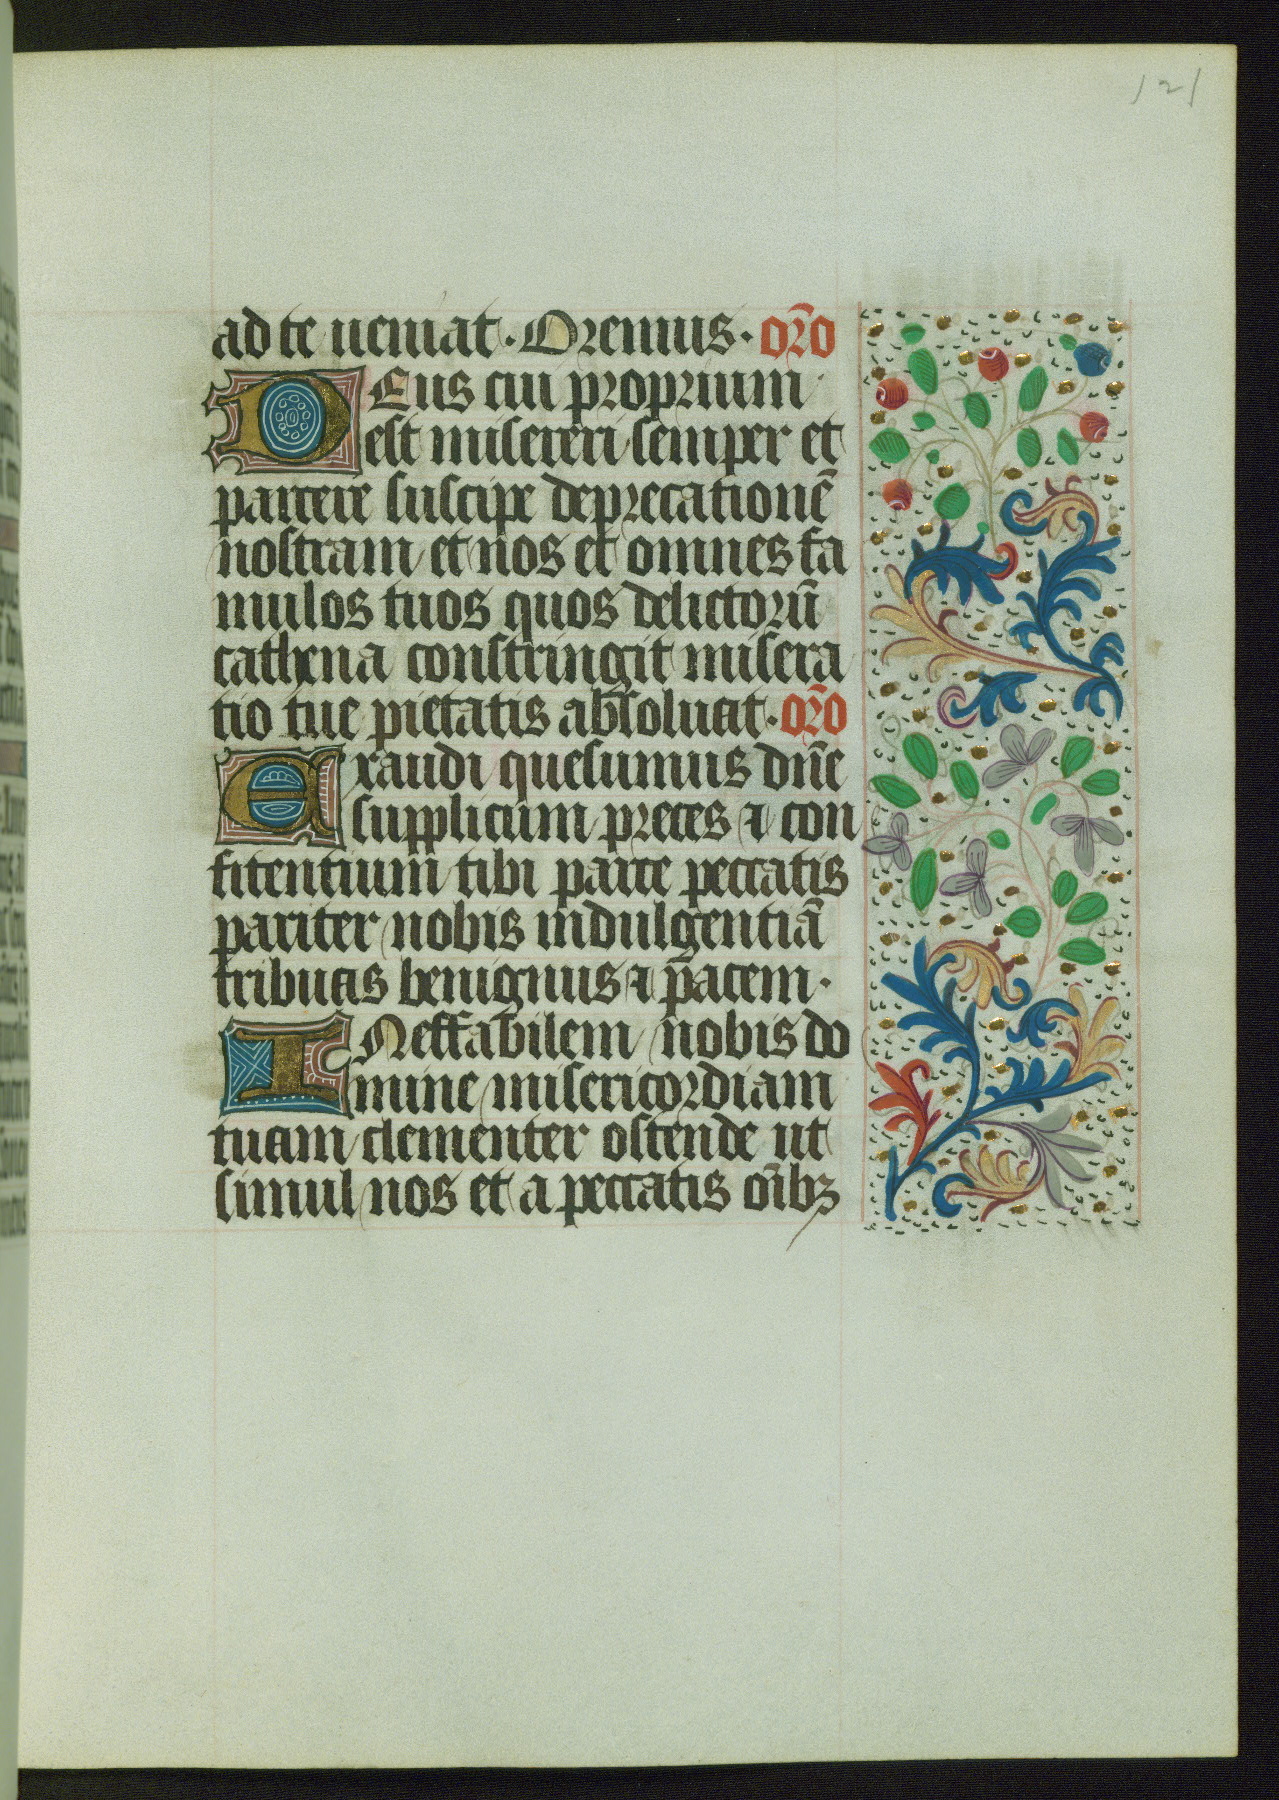 121
ad te ueniat · Oremus · or̄o
Deus cui proprium
est misereri semper et
parcere suscipe deprecationē
nostram et nos et omnes fa
mulos tuos quos delictorū
cathena constringit misera
tio tue pietatis absoluat · or̄o
Exaudi quesumus dn̄e
supplicum preces ⁊ con
fitentium tibi parce peccatis
pariter nobis indulgentiā
tribuas benignus ⁊ p̄acem ·
INeffabilem nobis do
mine misericordiam
tuam clementer ostende ut
simul nos et a peccatis oībꝫ